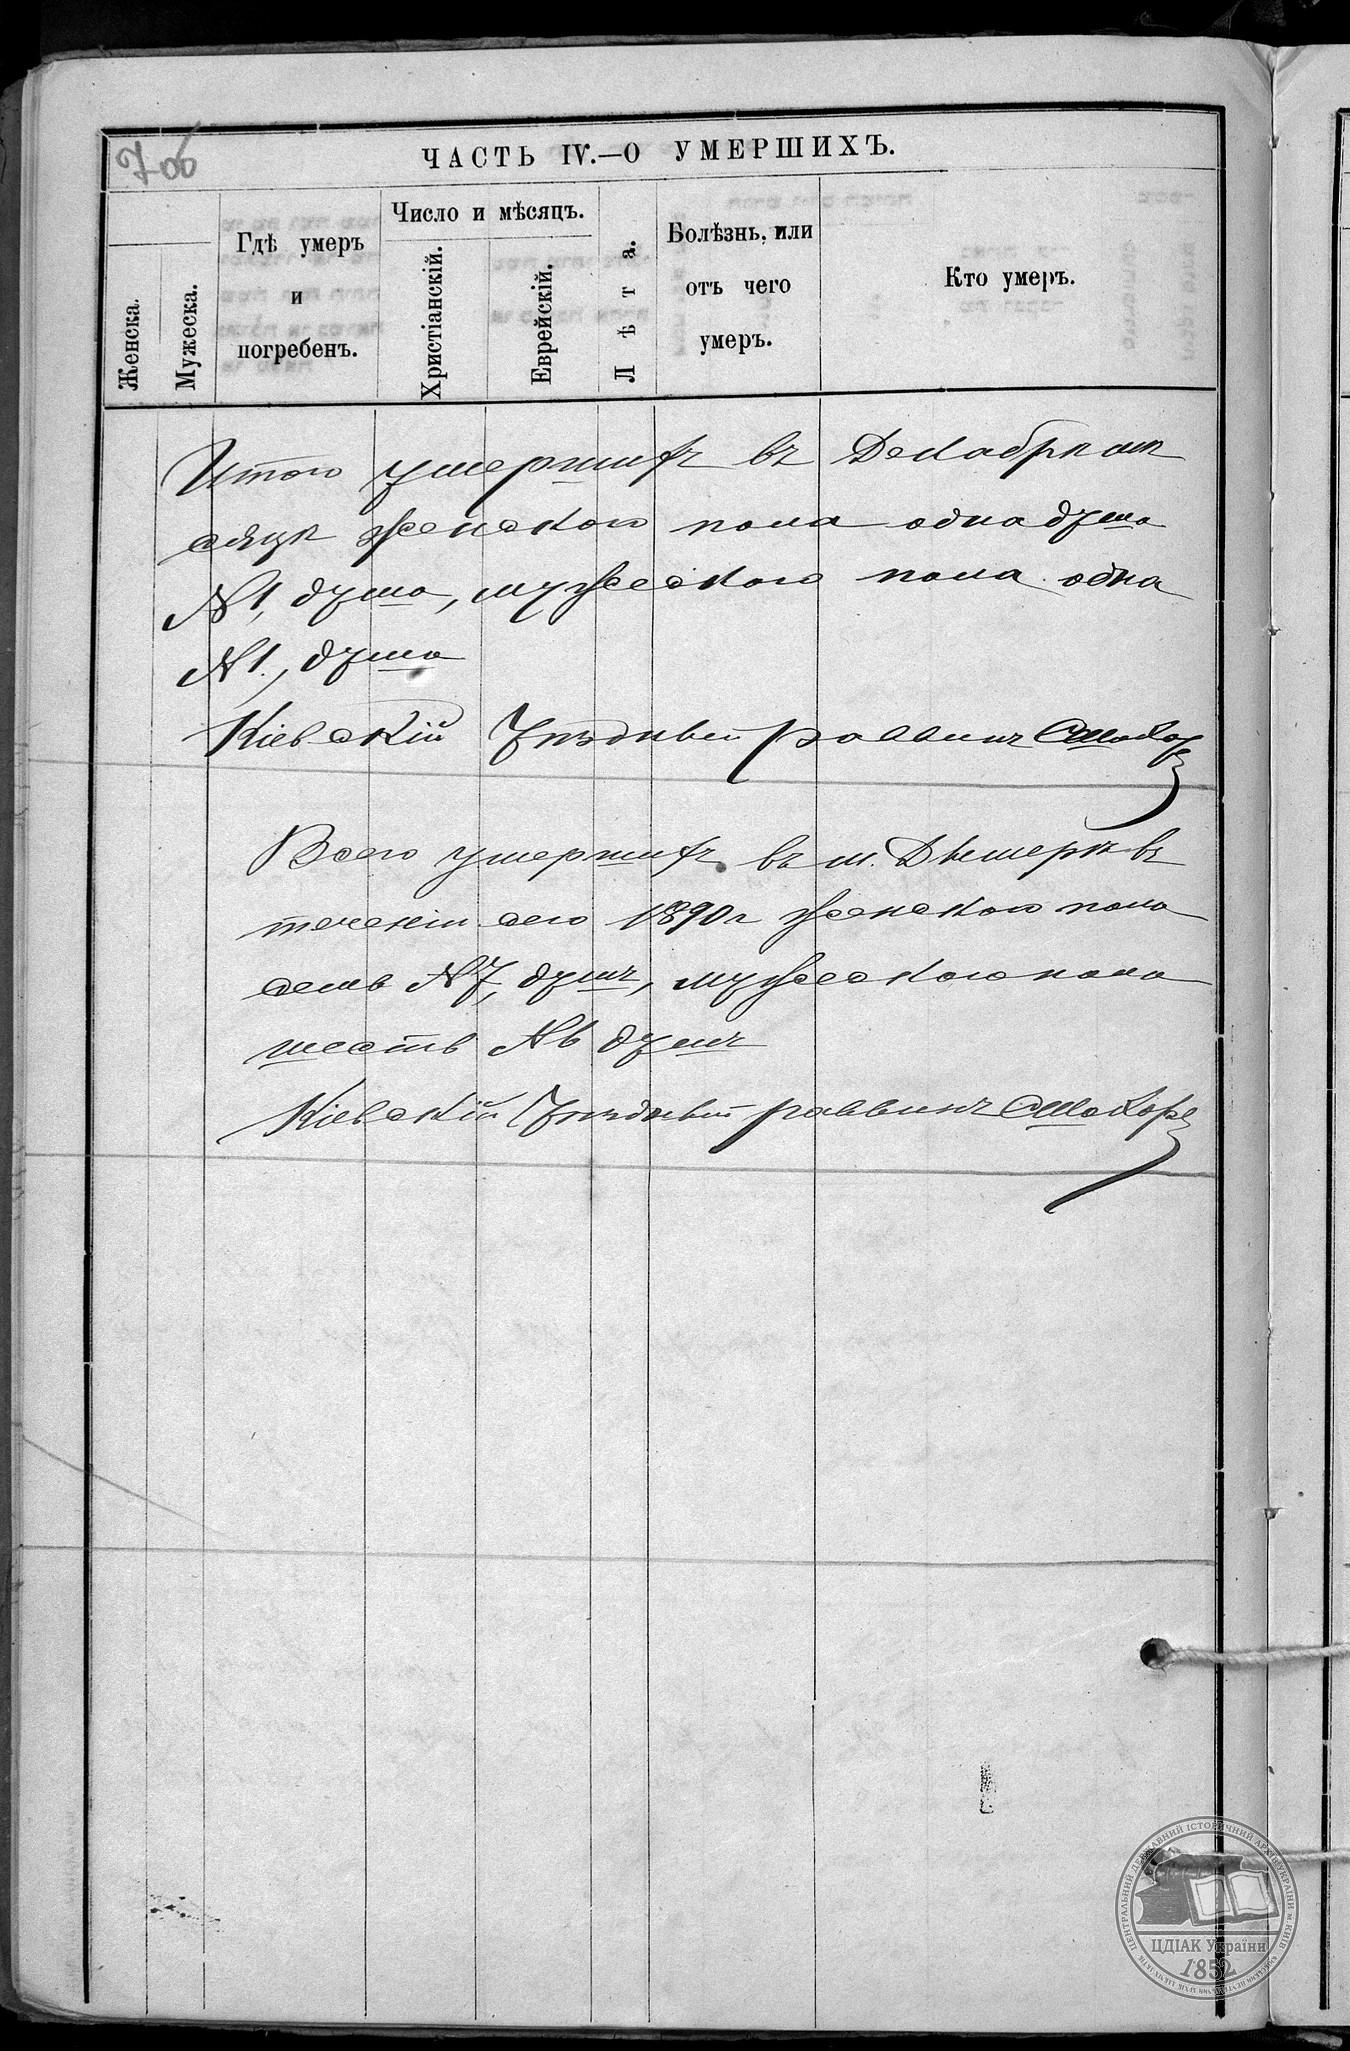 7об
ЧАСТЬ IV.—О УМЕРШИХЪ.
Женска.
Мужеска.
Гдѣ умеръ
и
погребенъ.
Число и мѣсяцъ.
Христіанскій.
Еврейскій.
Лѣта.
Болѣзнь, или
отъ чего
умеръ.
Кто умеръ.
Итого умершихъ въ Декабрѣ мѣ
сяцѣ женского пола одна душа
№1, душа, мужеского пола одна
№1, душа
Кіевскій Уѣздный раввинъ
Всего умершихъ въ м. Дымерѣ въ
теченіи сего 1890 г женского пола
семь №7, душъ, мужеского пола
шесть №6 душъ
Кіевскій Уѣздный раввинъ
ЦЕНТРАЛЬНИЙ ДЕРЖАВНИЙ ІСТОРИЧНИЙ АРХІВ УКРАЇНИ м. КИЇВ
ЦДІАК України
1852